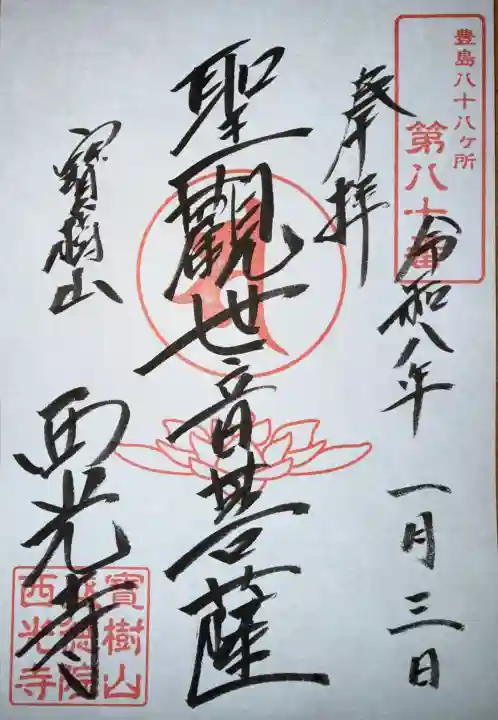 豊島八十八ヶ所
第八十番
奉拝
令和八年
一月三日
聖観世音菩薩
寳樹山
西光寺
寳樹山
院
西光寺